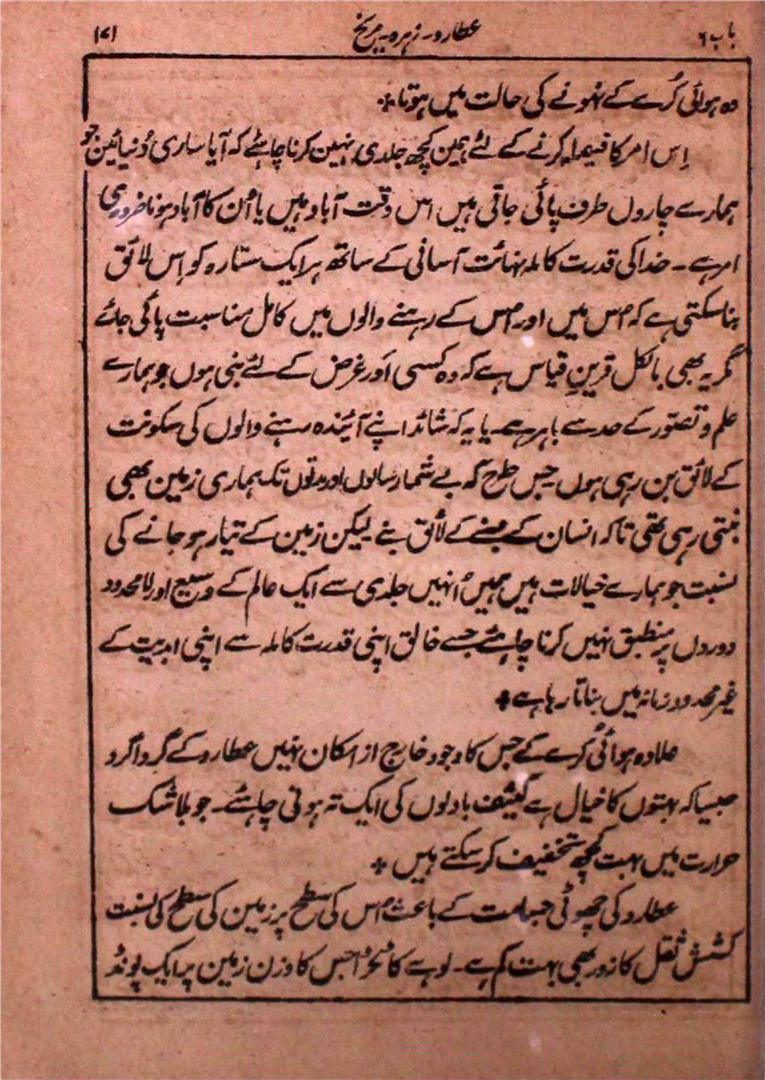 باب ۶ عطارد۔ زہرہ۔ مریخ ۱۷۱
وہ ہوائی کُرے کے نمونے کی حالت میں ہوتا٭
اِس امر کا فیصلہ کرنے کے لئے ہمین کچھ جلدی نہین کرنا چاہئے کہ آیا ساری دُنیائین جو
ہمارے چاروں طرف پائی جاتی ہیں اس وقت آباد ہیں یا اُن کا آباد ہونا ضروری
امر ہے۔ خدا کی قدرت کاملہ نہائت آسانی کے ساتھ ہر ایک ستارہ کو اِس لائق
بنا سکتی ہے کہ اُس میں اور اُس کے رہنے والوں میں کامل مناسبت پائی جائے
مگر یہ بھی بالکل قرینِ قیاس ہے کہ وہ کسی اَور غرض کے لئے بنی ہوں جو ہمارے
علم و تصوّر کے حد سے باہر ہے۔ یا یہ کہ شائد اپنے آئیندہ رہنے والوں کی سکونت
کے لائق بن رہی ہوں جس طرح کہ بے شمار سالوں اور مدتوں تک ہماری زمین بھی
بنتی رہی تھی تاکہ انسان کے بسنے کے لائق بنے لیکن زمین کے تیار ہو جانے کی
نسبت جو ہمارے خیالات ہیں ہمیں اُنہیں جلدی سے ایک عالم کے وسیع اور لامحدود
دوروں پر منطبق نہیں کرنا چاہئے جسے خالق اپنی قدرت کاملہ سے اپنی ابدیت کے
غیر محدود زمانہ میں بناتا رہا ہے٭
علاوہ ہوائی کُرے کے جس کا وجود خارج از امکان نہیں عطارد کے گرد اگرد
جیسا کہ بہتوں کا خیال ہے کثیف بادلوں کی ایک تہ ہونی چاہئے۔ جو بلا شک
حرارت میں بہت کچھ تخفیف کر سکتے ہیں ٭
عطارد کی چھوٹی جسامت کے باعث اُس کی سطح پر زمین کی سطح کی نسبت
کشش ثقل کا زور بھی بہت کم ہے۔ لوہے کا ٹکڑا جس کا وزن زمین پر ایک پونڈ